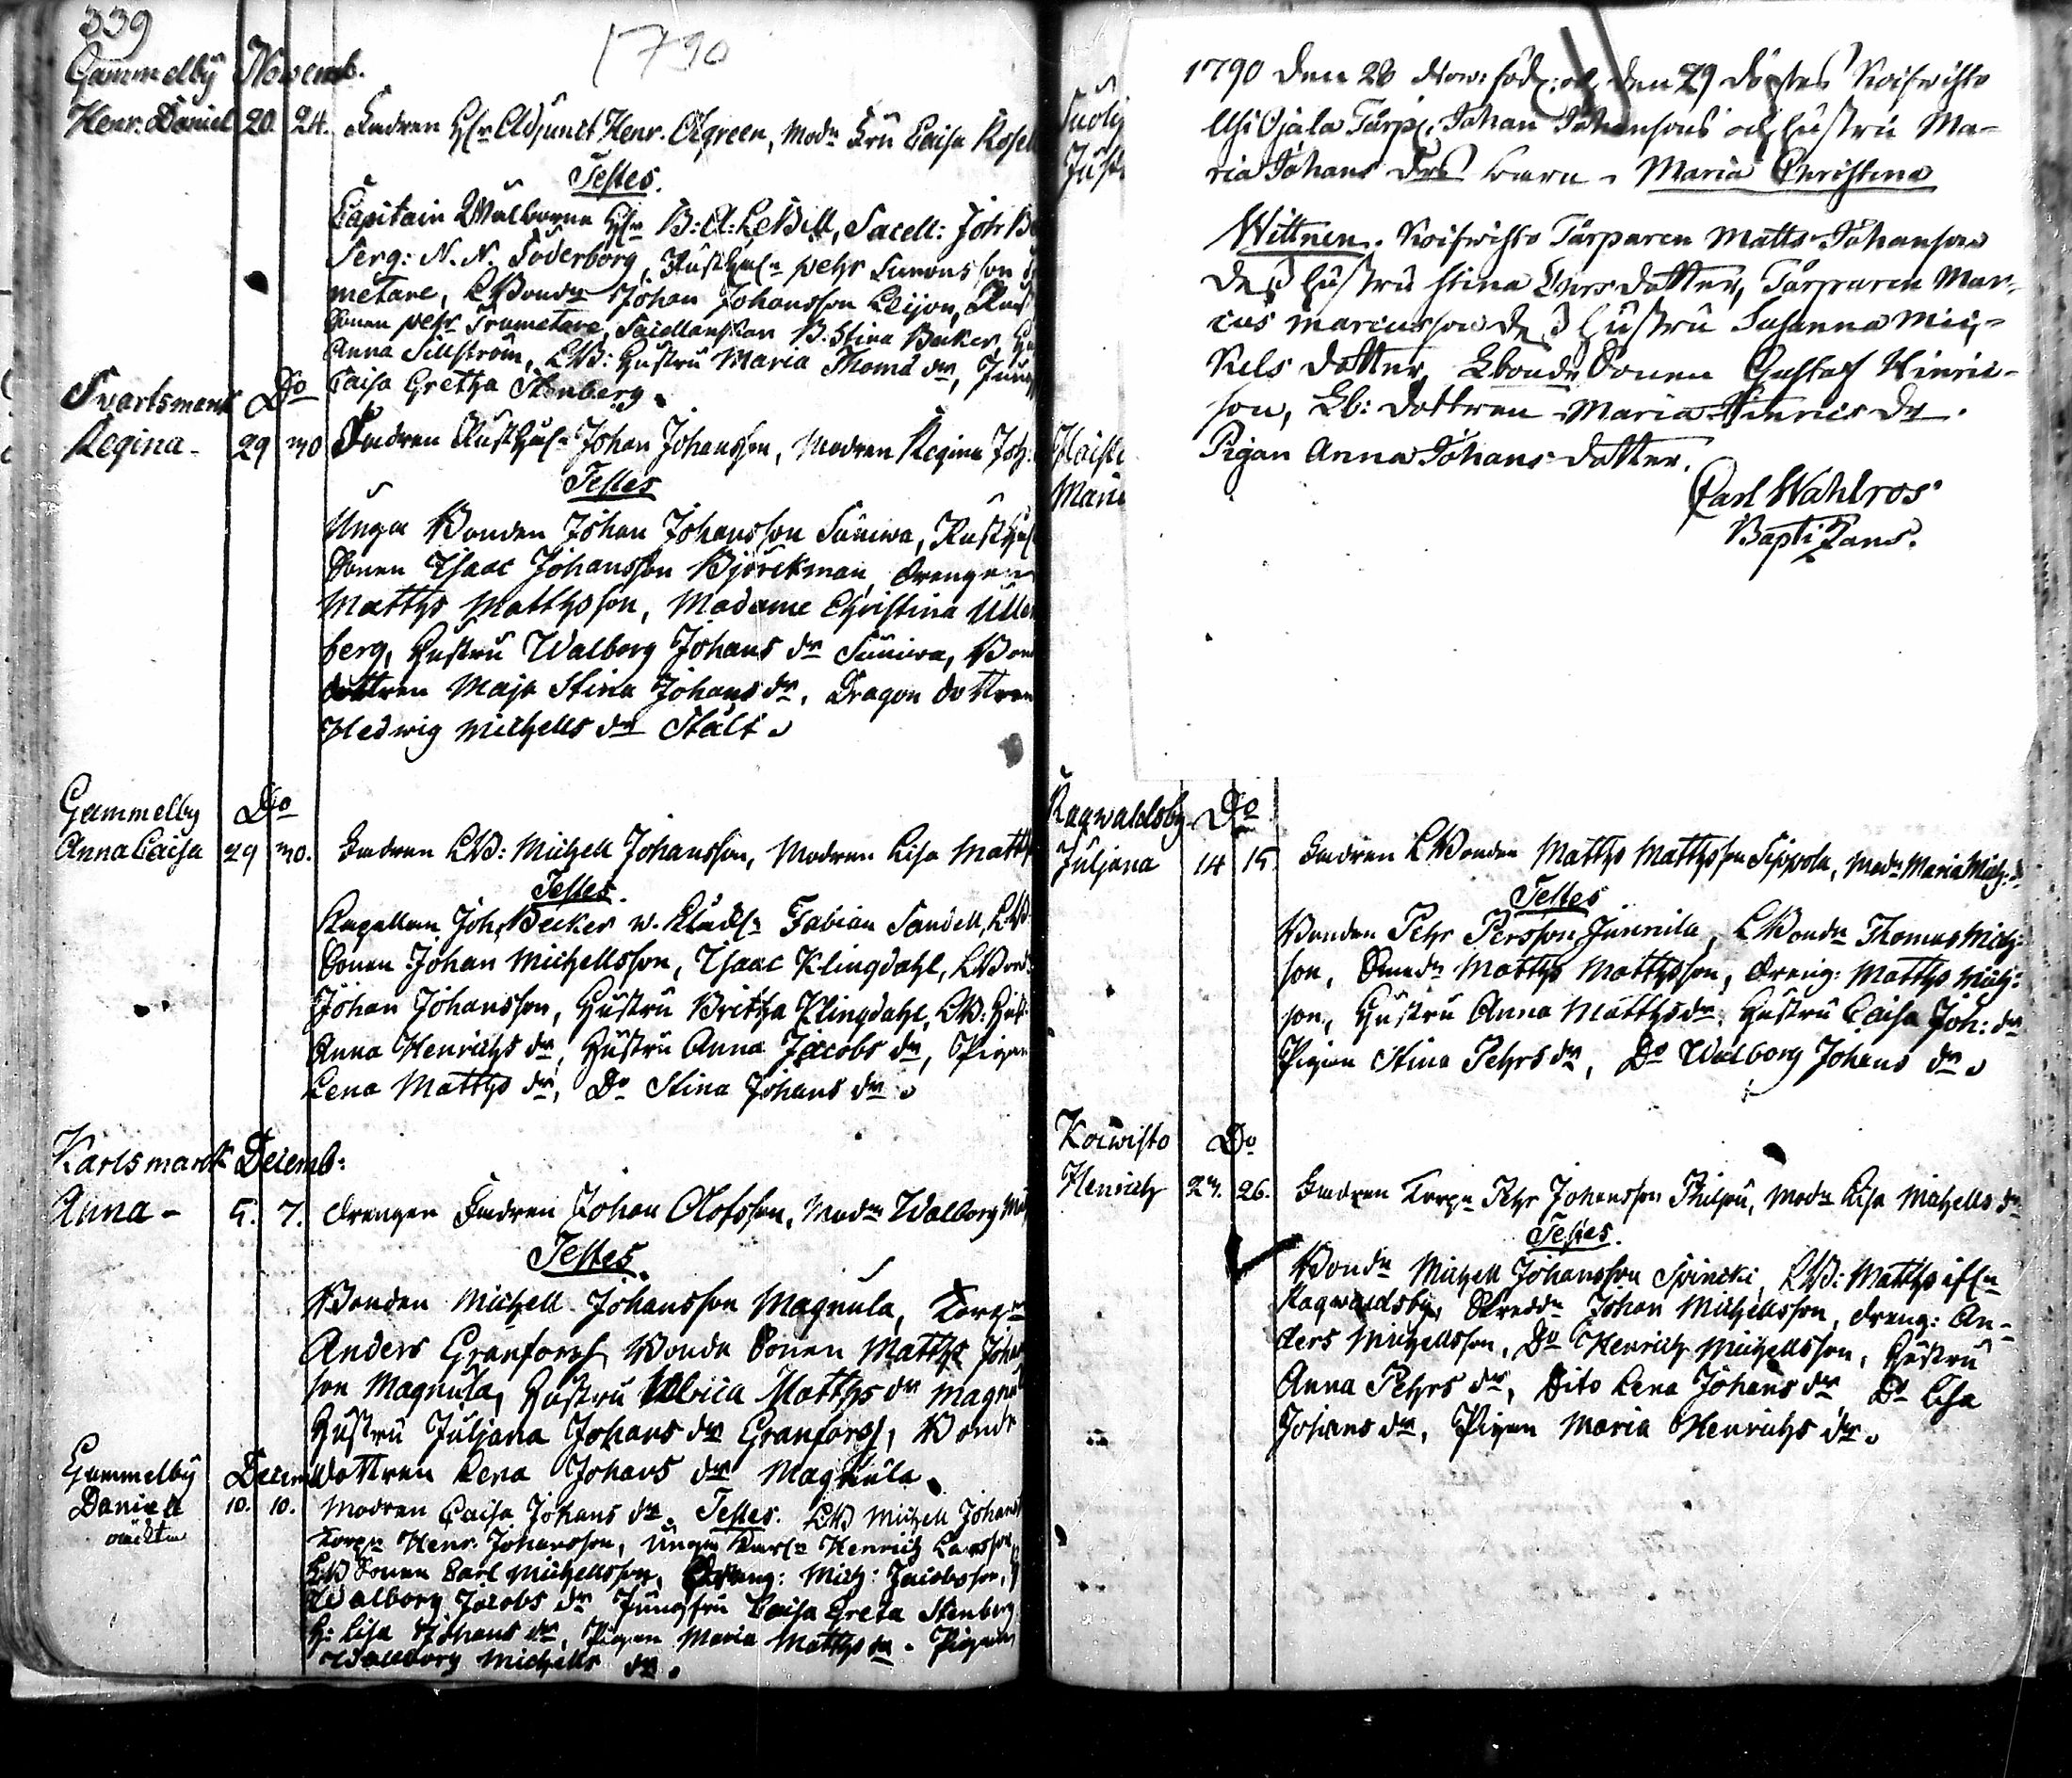 339
1790
Gammelby Novemb.
Henr. Daniel 20. 24. Fadren H:r Adjunct Henr. Ögreen, Mod:n Fru Caisa Rosel
Testes.
Capitain Walborne H:r B: A: LeBell, Sacell: Joh B
Serg: N. N. Söderborg, Rusth:n Pehr Simonsson
metare, LBond:n Johan Johansson Leijon, Rust
Sonen Pehr Trumetare, Sacellanskan B. Stina Becker,
Anna Sillström, LB: Hustru Maria Thomæ d:r, Jung
Caisa Gretha Stenberg.
Svartsmark D:o
Regina - 29 30 Fadren Rusth:n Johan Johansson, Modren Regina Joh:
Testes
Unga Bonden Johan Johansson Suniwa, Rusth
Sonen Isaac Johansson Björckman, Drengen
Matths Matthsson, Madame Christina Ullen
berg, Hustru Walborg Johans d:r Suniwa, Bon
dottren Maja Stina Johans d:r, Dragon dottren
Hedwig Michells d:r Stålt.
Gammelby D:o
Anna Caisa 29 30. Fadren LB: Michell Johansson, Modren Lisa Matth
Testes.
Kapellan Joh. Becker Fabian Sandell, LB
Sonen Johan Michellsson, Isaac Klingdahl, LBond:
Johan Johansson, Hustru Britha Klingdahl, LB: Hust:
Anna Henrichs d:r, Hustru Anna Jacobs d:r, Pigan
Lena Matths d:r, D:o Stina Johans d:r.
Karlsmark Decemb:
Anna - 5. 7. Drengen Fadren Johan Olofsson, Mod:n Walborg
Testes.
Bonden Michell Johansson Magnula, Torp:n
Anders Granforss, Bonde Sonen Matths Johan
son Magnula, Hustru Ulrica Matths d:r Magnul
Hustru Juljana Johans d:r Granforss, Bond
dottren Lena Johans d:r Magnula.
Gammelby Decemb
Daniel 10. 10. Modren Caisa Johans d:r. Testes. LB Michell Johans
oächta Torp:n Henr. Johansson, Unga Henrich Larsson,
LB Sonen Carl Michellsson, Dreng: Mich: Jacobsson,
Walborg Jacobs d:r Jungfru Caisa Greta Stenberg
H: Lisa Johans d:r, Pigan Maria Matths d:r - Pigan
Walborg Michells d:r.
1790 den 28 Nov: född: och den 29 döptes Koifwisto
Ylli Ojala Torp: Johan Johansons och hustru Ma-
ria Johans drs barn - Maria Christina
Wittnen. Koifwisto Torparen Matts Johanson
dess hustru Stina Ersdotter, Torparen Mar-
cus Marcusson dess hustru Susanna Mic-
kels dotter, Lbonde Sonen Gustaf Hinric-
son, Lb: dottren Maria Hinrics dr.
Pigan Anna Johans dotter.
Carl Wahlros
Baptizans.
Ragwaldsby D:o
Juljana 14 15. Fadren LBonden Matths Matthsson Sippola, Mod:n Maria Mich: d:r
Testes
Bonden Pehr Persson Junnila, LBond:n Thomas Mich:
son, Smed:n Matths Matthsson, Dreng: Matths Mich:
son, Hustru Anna Matths d:r, Hustru Caisa Joh: d:r
Pigan Stina Pehrs d:r, D:o Walborg Johans d:r.
Koiwisto D:o
Henrich 23. 26. Fadren Torp:n Pehr Johansson, Mod:n Lisa Michells d:r
Testes.
Bond:n Michell Johansson Spincki, LB: Matths
Ragwaldsby, Skredd:n Johan Michellsson, Dreng: An-
ders Michellsson, D:o Henrich Michellsson, Hustru
Anna Pehrs d:r, Dito Lena Johans d:r D:o Lisa
Johans d:r, Pigan Maria Henrichs d:r.